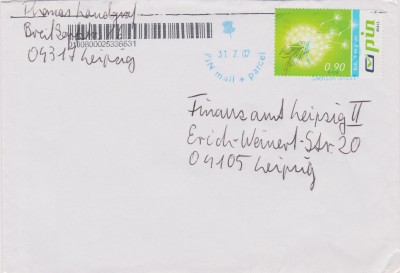 Thomas Landgraf
Breite
04317 Leipzig
31.7.07
PIN mail + parcel
0,90
pin
MAIL
Finanzamt Leipzig II
Erich-Weinert-Str. 20
04105 Leipzig